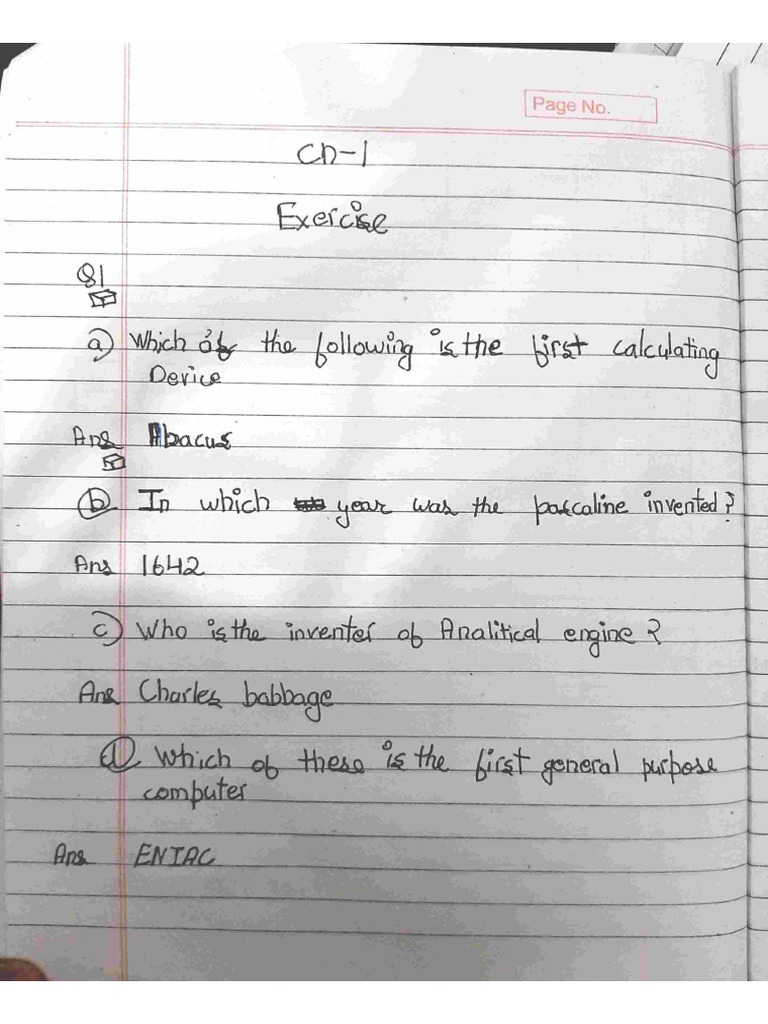 Page No.
Ch-1
Exercise
Q1
a) Which of the following is the first calculating
Device
Ans Abacus
b) In which year was the pascaline invented?
Ans 1642
c) Who is the inventer of Analitical engine?
Ans Charles babbage
d) Which of these is the first general purpose
computer
Ans ENIAC